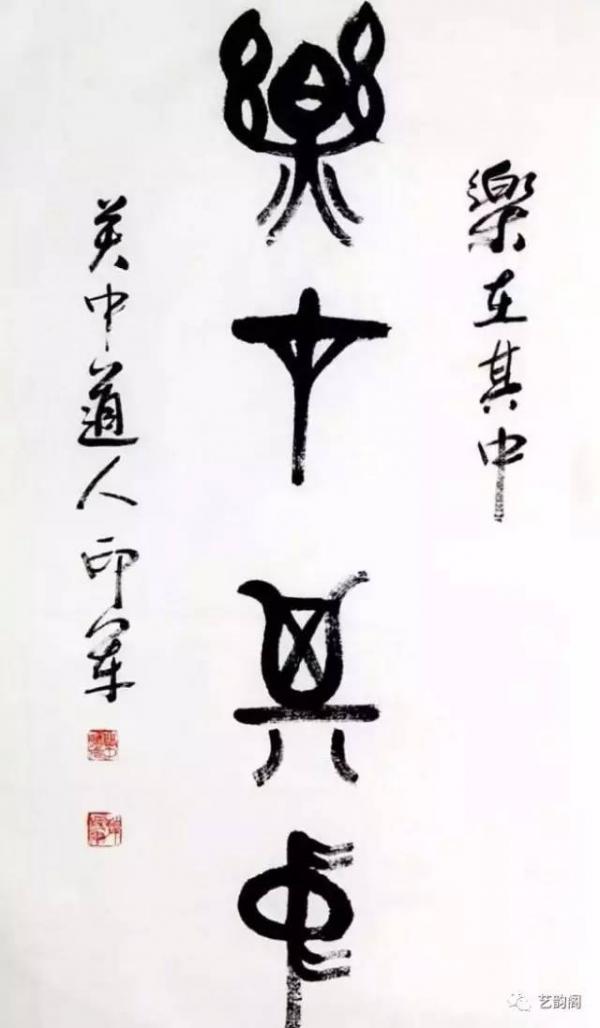 樂在其中
樂在其中
中道人印軍
艺韵阁